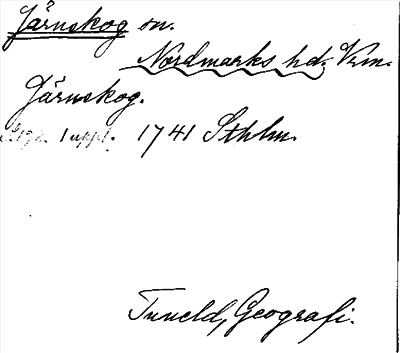 Järnskog sn.
Nordmarks hd, Vrm.
Järnskog.
1 uppl. 1741 Sthlm.
Tuneld, Geografi.